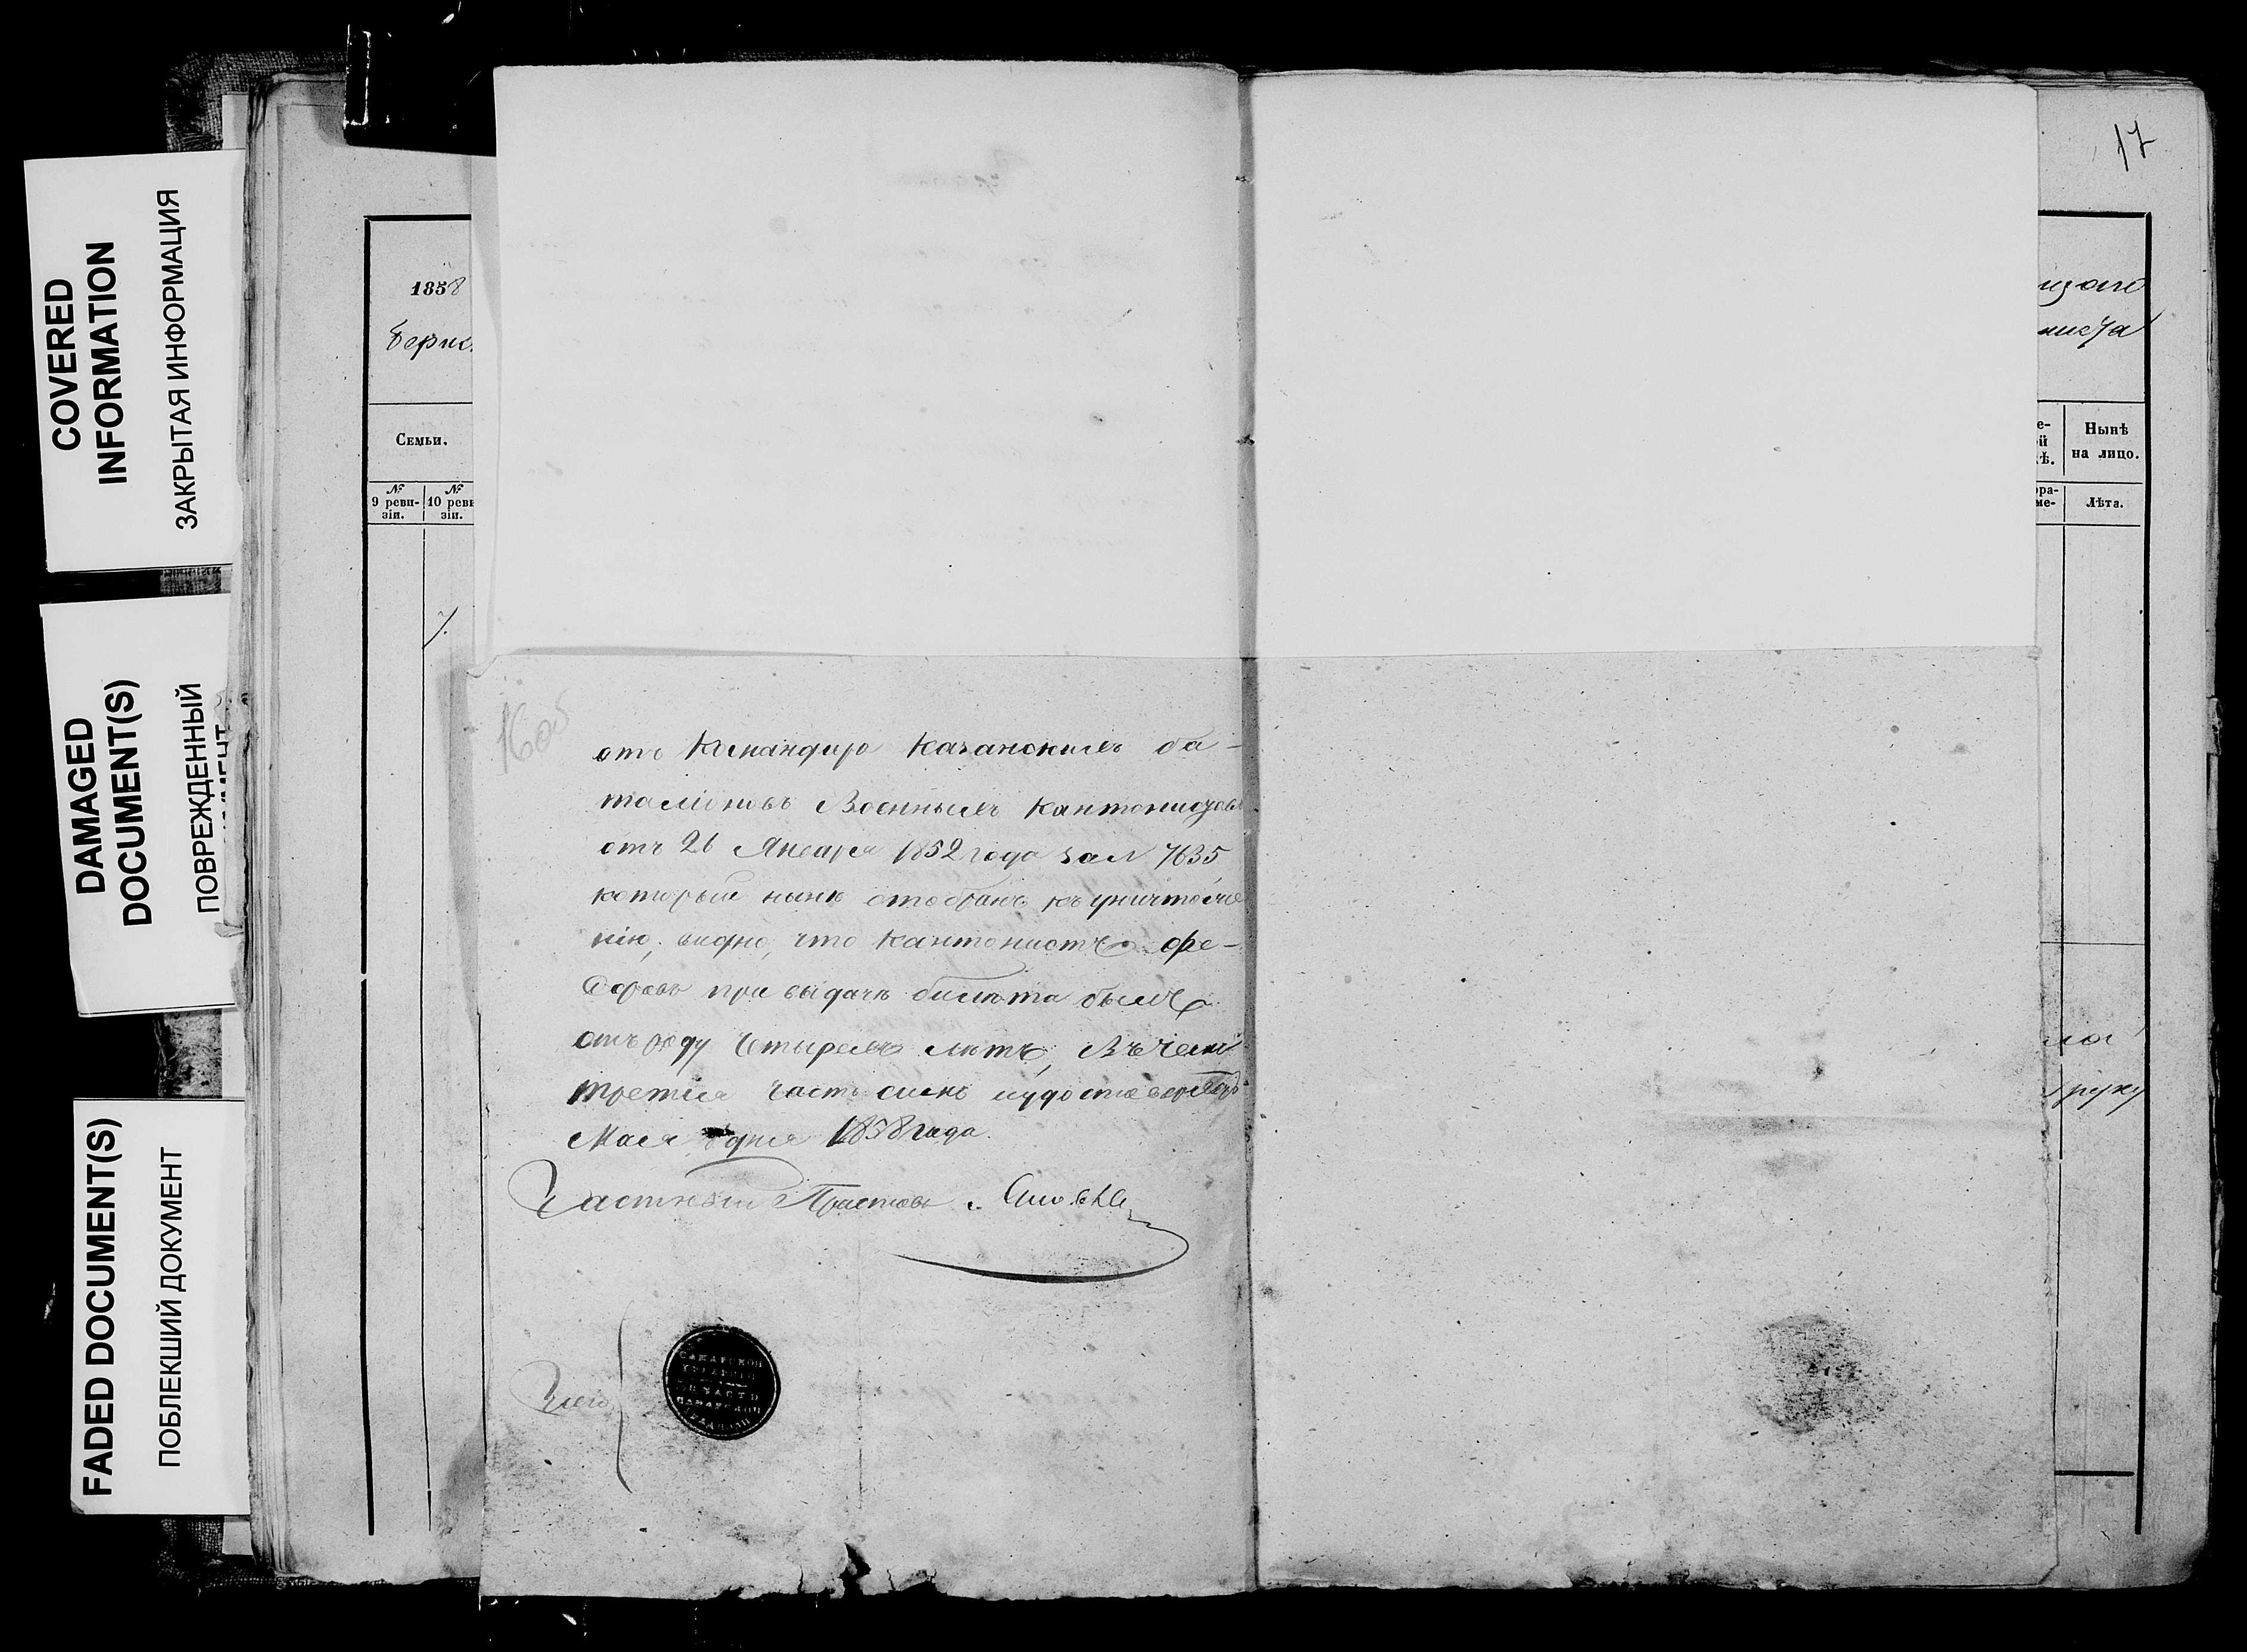 COVERED
INFORMATION
ЗАКРЫТАЯ ИНФОРМАЦИЯ
DAMAGED
DOCUMENT(S)
ПОВРЕЖДЕННЫЙ
FADED DOCUMENT(S)
ПОБЛЕКШИЙ ДОКУМЕНТ
1858
Семьи.
№
9 реви-
зіи.
№
10 реви
зіи.
7.
17
Нынѣ
на лицо.
Лѣта.
16 об
отъ Командира Казанскихъ ба-
таліоновъ Военныхъ Кантонистовъ
отъ 26 Января 1852 года за № 7635
который нынѣ отобранъ къ уничтоже
нію, видно, что Кантонистъ Фе-
доровъ при выдачѣ билета былъ
отъ роду Четырехъ лѣтъ, Въ чемъ
третья часть симъ и удостоверяетъ
Мая дня 1858 года.
Частный Приставъ
САМАРСКОЙ
ЧАСТИ